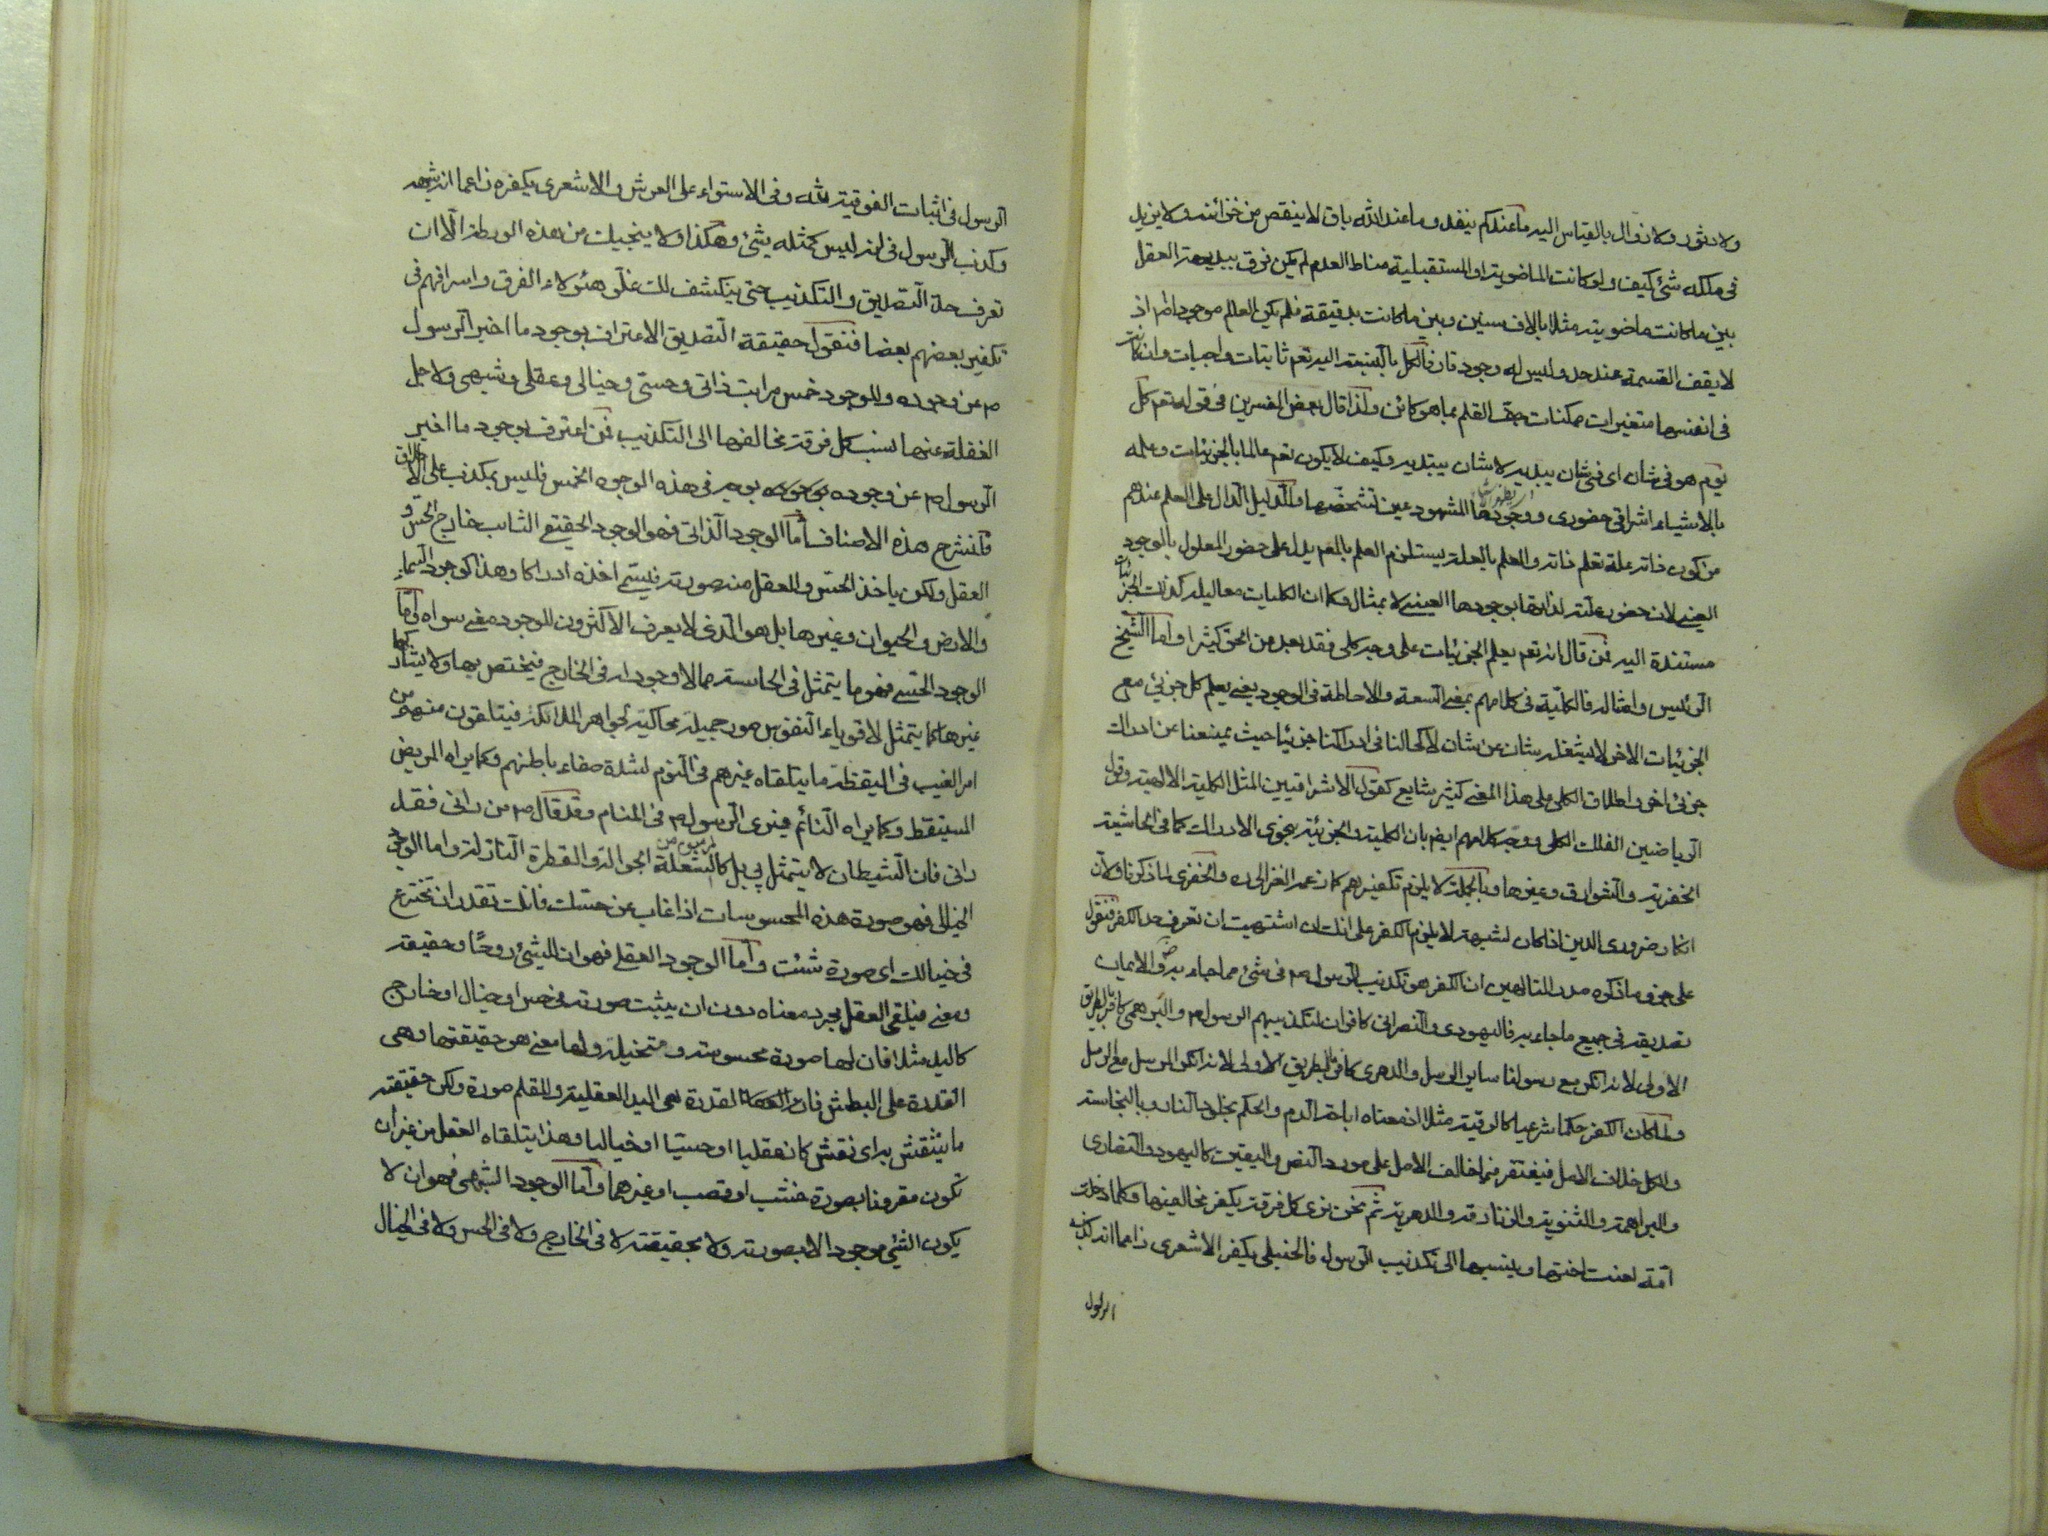 ولا دثور ولا زوال بالقياس اليه ما عندكم ينفد وما عند الله باق لا ينقص من خزائنه ولا يزيد
فى ملكه شئ كيف ولو كانت الماضوية او المستقبلية مناط العدم لم يكن فرق ببديهة العقل
بين ما كانت ماضوية مثلا بالاف سنين وبين ما كانت بدقيقة فلم يكن العالم موجودا اذ
لا يقف القسمة عند حد وليس له وجود قار فالكل بالنسبة اليه تعم ثابتات واجبات وان كانت
فى انفسها متغيرات ممكنات جف القلم بما هو كائن ولذا قال بعض المفسرين فى قوله تعم كل
يوم هو فى شان اى فى شان يبديه لا شان يبتديه وكيف لا يكون تعم عالما بالجزئيات وعلمه
بالاشياء اشراقى حضورى ووجودها المشهود عين تشخصها والدليل الدال على العلم عندهم
من كون ذاته علة تعلم ذاته والعلم بالعلة يستلزم العلم بالمعم يدل على حضور المعلول بالوجود
العينى لان حضور علته لذاتها بوجودها العينى لا بمثال وكما ان الكليات معاليله كذلك الجزئيات
مستندة اليه فمن قال انه تعم يعلم الجزئيات على وجه كلى فقد بعد من الحق كثيرا واما الشيخ
الرئيس وامثاله فالكلية فى كلامهم بمعنى السعة والاحاطة فى الوجود يعنى يعلم كل جزئى مع
الجزئيات الاخر لا يشغله شان عن شان لا كحالنا فى ادراكنا جزئيا حيث يمنعنا عن ادراك
جزئى اخر واطلاق الكلى على هذا المعنى كثير شايع كقول الاشراقيين المثل الكلية الالهية وقول
الرياضيين الفلك الكلى ووجه كلامهم ايضا بان الكلية والجزئية بنحوى الادراك كما فى الحاشية
الخفرية والشوارق وغيرها وبالجملة لا يلزم تكفيرهم كما زعمه الغزالى ره والخفرى لما ذكرنا ولان
انكار ضرورى الدين اذا كان لشبهة لا يلزم الكفر على انك ان اشتهيت ان تعرف حد الكفر فنقول
على حذو ما ذكره صدر المتالهين ان الكفر هو تكذيب الرسول ص فى شئ مما جاء به والايمان
تصديقه فى جميع ما جاء به فاليهودى والنصرانى كافران لتكذيبهم الرسول ص والبرهمى كافر بالطريق
الاولى لانه انكر مع رسولنا ساير الرسل والدهرى كافر بالطريق الاولى لانه انكر المرسل مع الرسل
ولما كان الكفر حكما شرعيا كالرقية مثلا اذ معناه اباحة الدم والحكم بخلود النار وبالنجاسة
والكل خلاف الاصل فيفتقر فيما خالف الاصل على مورد النص واليقين كاليهود والنصارى
والبراهمة والثنوية والزنادقة والدهرية ثم نحن نرى كل فرقة يكفر مخالفيها وكلما دخلت
امة لعنت اختها وينسبها الى تكذيب الرسول فالحنبلى يكفر الاشعرى زاعما انه كذب
الرسول
الرسول فى اثبات الفوقية لله وفى الاستواء على العرش والاشعرى يكفره زاعما انه شبه
وكذب الرسول فى انه ليس كمثله شئ وهكذا ولا ينجيك من هذه الورطة الا ان
تعرف حد التصديق والتكذيب حتى ينكشف لك غلو هئولاء الفرق واسرافهم فى
تكفير بعضهم بعضا فنقول حقيقة التصديق الاعتراف بوجود ما اخبر الرسول
ص عن وجوده وللوجود خمس مراتب ذاتى وحسى وخيالى وعقلى وشبهى ولاجل
الغفلة عنها نسب كل فرقة مخالفها الى التكذيب فمن اعترف بوجود ما اخبر
الرسول ص عن وجوده بوجه فى هذه الوجوه الخمس فليس بمكذب على الاطلاق
فلنشرح هذه الاصناف اما الوجود الذاتى فهو الوجود الحقيقى الثابت خارج الحس و
العقل ولكن ياخذ الحس والعقل منه صورة فيسمى اخذه ادراكا وهذا كوجود السماء
والارض والحيوان وغيرها بل هو الذى لا يعرف الاكثرون للوجود معنى سواه واما
الوجود الحسى فهو ما يتمثل فى الحاسة مما لا وجود له فى الخارج فيختص بها ولا يشاركها
غيرها كما يتمثل لاقوياء النفوس صور جميلة محاكية لجواهر الملائكة فيتلقون منهم من
امر الغيب فى اليقظة ما يتلقاه غيرهم فى النوم لشدة صفاء باطنهم وكما يراه المريض
المستيقظ وكما يراه النائم فيرى الرسول ص فى المنام وقد قال ص من رانى فقد
رانى فان الشيطان لا يتمثل بى بل كالشعلة الجوالة والقطرة النازلة واما الوجود
الخيالى فهو صورة هذه المحسوسات اذا غاب عن حسك فانك تقدر ان تخترع
فى خيالك اى صورة شئت واما الوجود العقلى فهو ان للشئ روحا وحقيقة
ومعنى فيلقى العقل مجرد معناه دون ان يثبت صورته فى حس او خيال او خارج
كاليد مثلا فان لها صورة محسوسة ومتخيلة ولها معنى هو حقيقتها وهى
القدرة على البطش فان القدرة هى اليد العقلية وللقلم صورة ولكن حقيقته
ما ينتقش به اى نقش كان عقليا او حسيا او خياليا وهذا يتلقاه العقل من غير ان
تكون مقرونا بصورة خشب او قصب او غيرهما واما الوجود الشبهى فهو ان لا
يكون الشئ موجودا لا بصورته ولا بحقيقته لا فى الخارج ولا فى الحس ولا فى الخيال